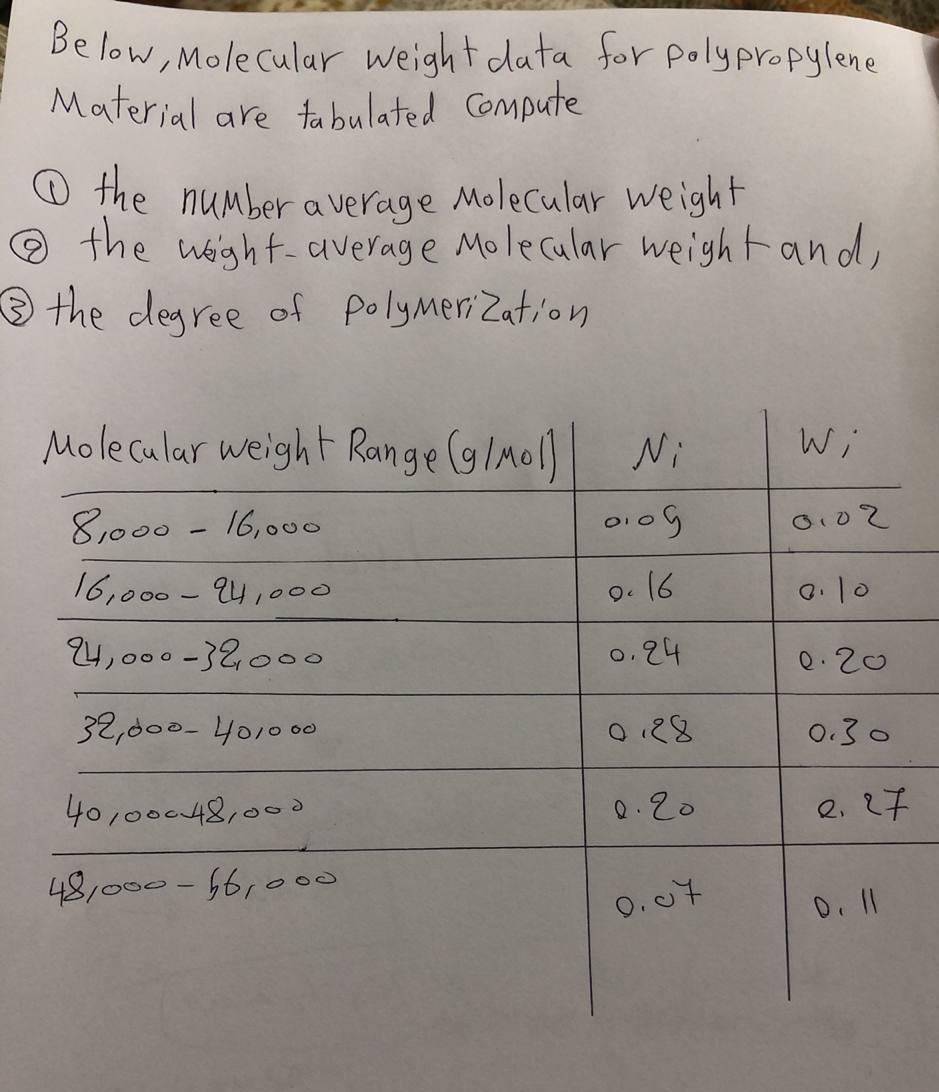 Below, Molecular weight data for polypropylene
Material are tabulated Compute
① the number average Molecular Weight
② the weight-average Molecular weight and,
③ the degree of polymerization
Molecular weight Range (g/Mol) Ni Wi
8,000 - 16,000 0.05 0.02
16,000 - 24,000 0.16 0.10
24,000 - 32,000 0.24 0.20
32,000 - 40,000 0.28 0.30
40,000-48,000 0.20 0.27
48,000 - 56,000 0.07 0.11